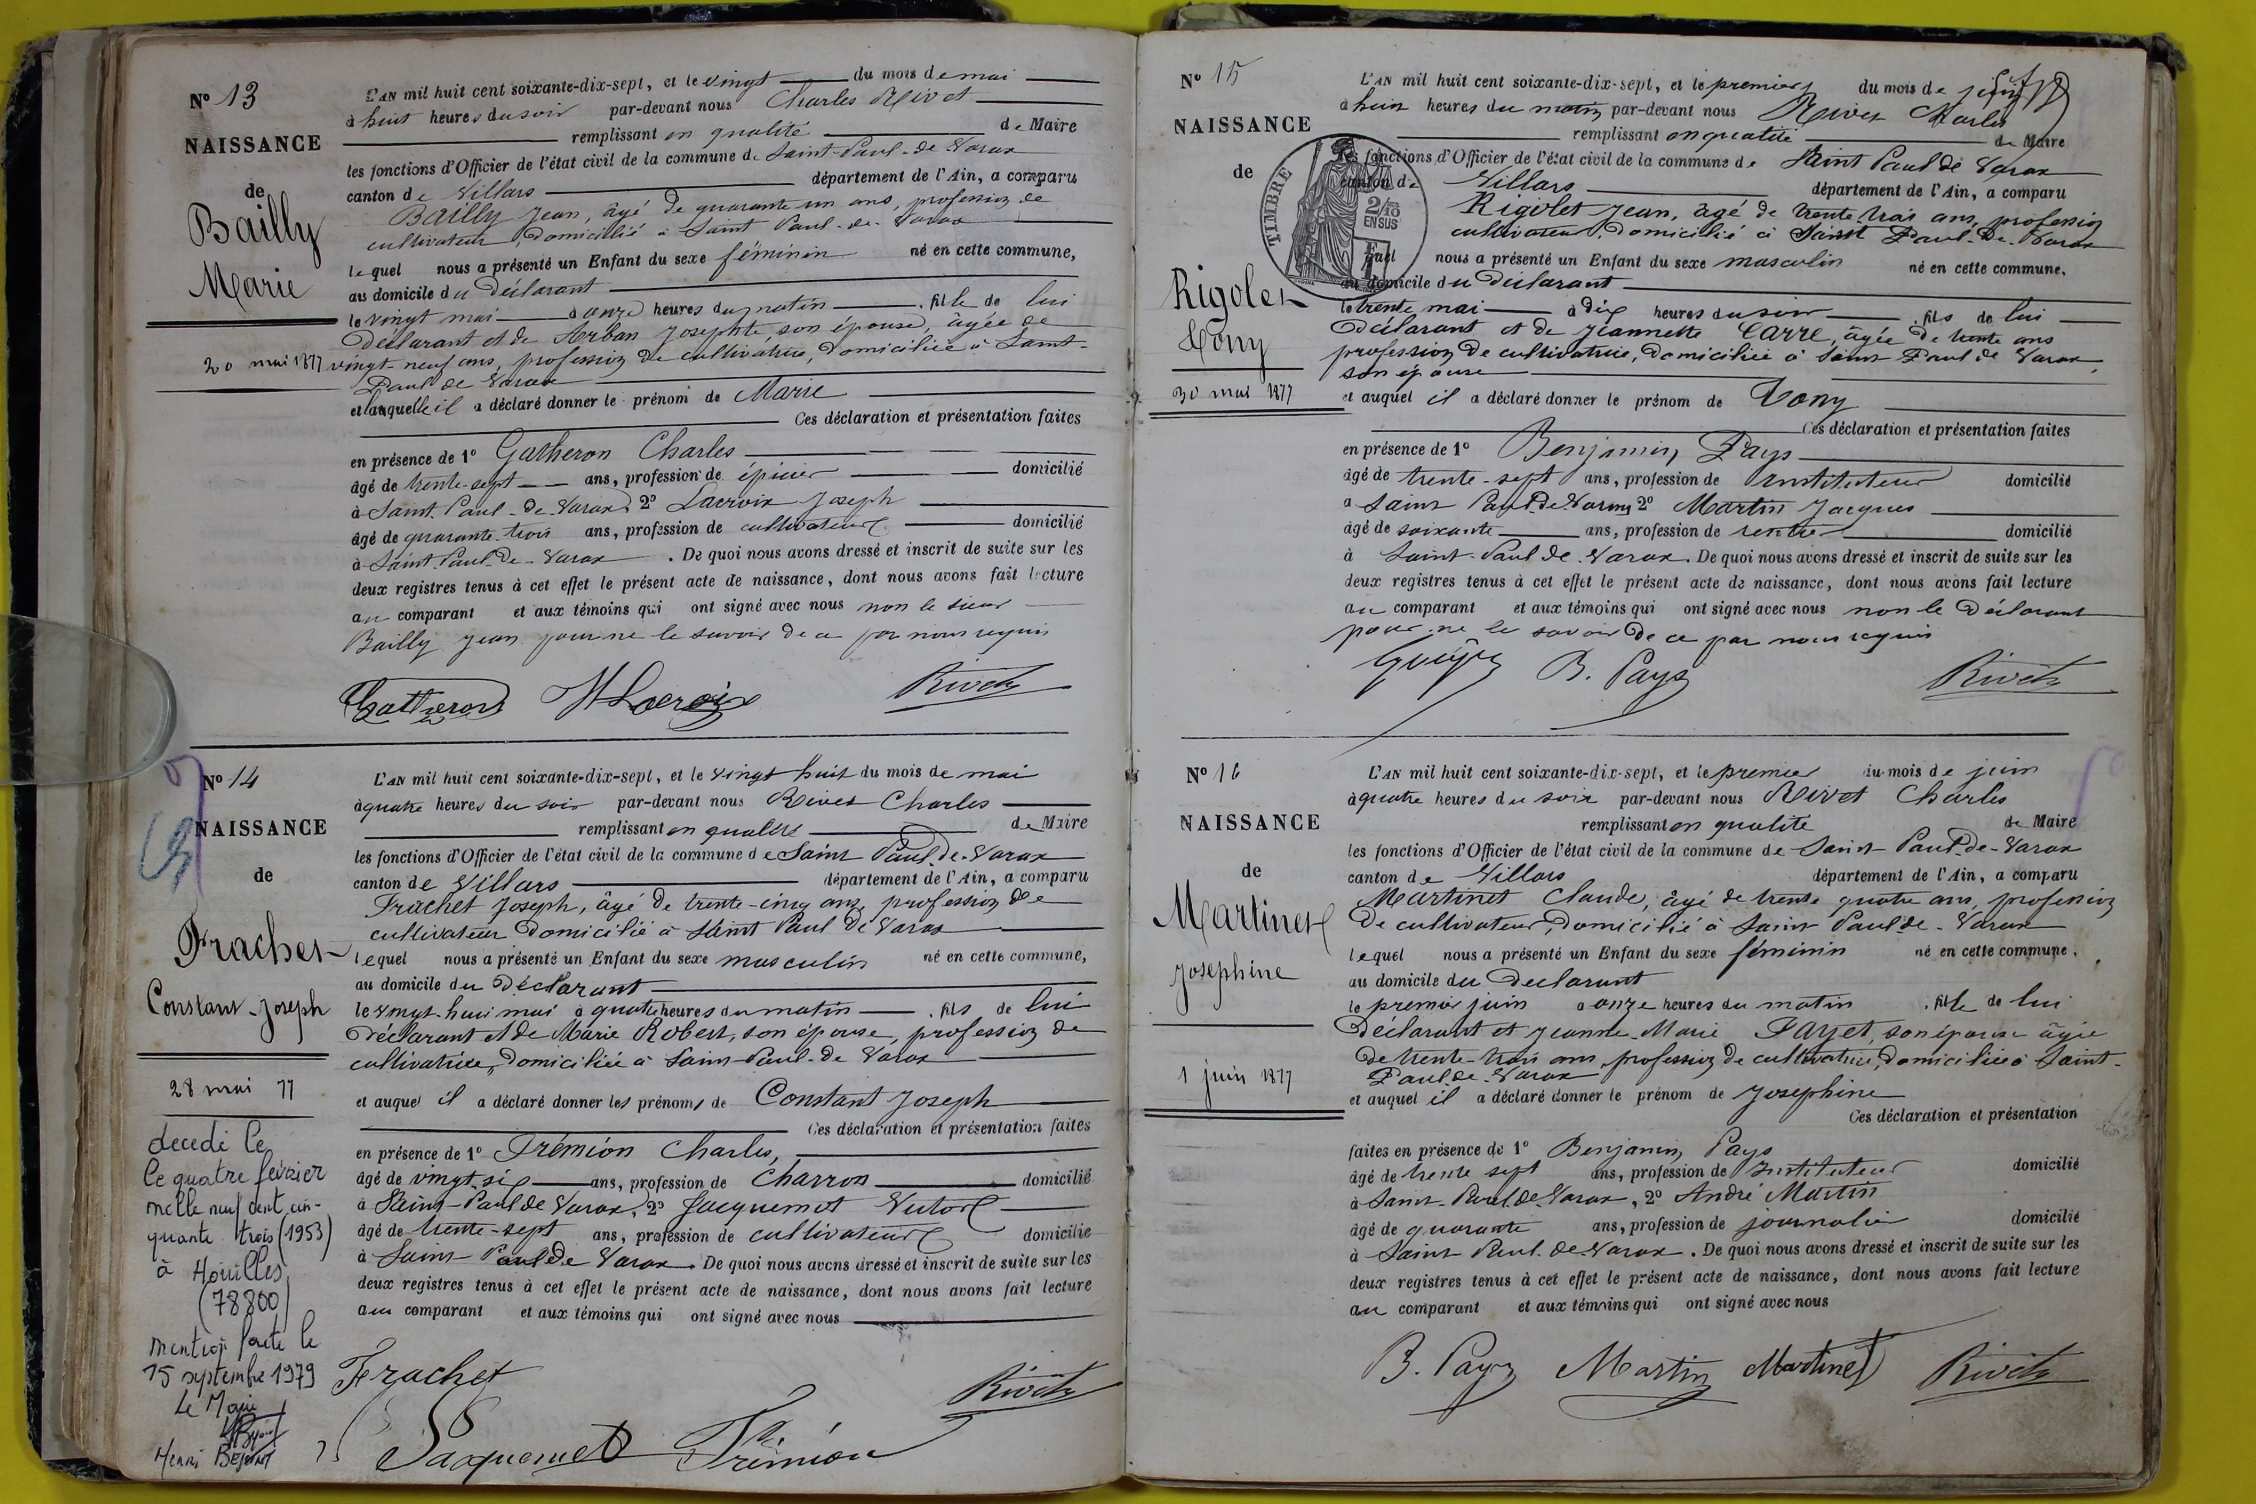 N° 13
NAISSANCE
de
Bailly
Marie
20 mai 1877
L'AN mil huit cent soixante-dix-sept, et le vingt du mois de mai
à huit heures du soir par-devant nous Charles Rivet
remplissant en qualité de Maire
les fonctions d'Officier de l'état civil de la commune de Saint-Paul-de-Varax
canton de Villars département de l'Ain, a comparu
Bailly Jean, âgé de quarante un ans, profession de
cultivateur, domicilié à Saint Paul-de-Varax
lequel nous a présenté un Enfant du sexe féminin né en cette commune,
au domicile du Déclarant
le vingt mai à onze heures du matin . fille de lui
Déclarant et de Arban Josephte son épouse, âgée de
vingt-neuf ans, profession de cultivatrice, domiciliée à Saint-
Paul de Varax
et laquelle il a déclaré donner le prénom de Marie
Ces déclaration et présentation faites
en présence de 1° Gatheron Charles
âgé de trente-sept ans, profession de épicier domicilié
à Saint-Paul-de-Varax 2° Lacroix Joseph
âgé de quarante-trois ans, profession de cultivateur domicilié
à Saint-Paul-de-Varax . De quoi nous avons dressé et inscrit de suite sur les
deux registres tenus à cet effet le présent acte de naissance, dont nous avons fait lecture
au comparant et aux témoins qui ont signé avec nous non le sieur
Bailly Jean pour ne le savoir de ce par nous requis
Gatheron Lacroix Rivet
N° 14
NAISSANCE
de
Frachet
Constant-Joseph
28 mai 77
décédé le
le quatre février
mille neuf cent cin-
quante trois (1953)
à Houilles
(78800)
mention faite le
15 septembre 1979
Le Maire
Henri
L'AN mil huit cent soixante-dix-sept, et le vingt huit du mois de mai
à quatre heures du soir par-devant nous Rivet Charles
remplissant en qualité de Maire
les fonctions d'Officier de l'état civil de la commune de Saint Paul-de-Varax
canton de Villars département de l'Ain, a comparu
Frachet Joseph, âgé de trente-cinq ans, profession de
cultivateur domicilié à Saint Paul de Varax
lequel nous a présenté un Enfant du sexe masculin né en cette commune,
au domicile du Déclarant
le vingt-huit mai à quatre heures du matin . fils de lui
Déclarant et de Marie Robert, son épouse, profession de
cultivatrice, domiciliée à Saint-Paul-de Varax
et auquel il a déclaré donner les prénoms de Constant Joseph
Ces déclaration et présentation faites
en présence de 1° Trémion Charles,
âgé de vingt-six ans, profession de Charron domicilié
à Saint-Paul de Varax, 2° Jacquemet Victor
âgé de trente-sept ans, profession de cultivateur domicilié
à Saint Paul de Varax. De quoi nous avons dressé et inscrit de suite sur les
deux registres tenus à cet effet le présent acte de naissance, dont nous avons fait lecture
au comparant et aux témoins qui ont signé avec nous
Frachet Rivet
Jacquemet Trémion
N° 15
NAISSANCE
de
Rigolet
Tony
30 mai 1877
TIMBRE
2/10
EN SUS
L'AN mil huit cent soixante-dix-sept, et le premier du mois de juin
à huit heures du matin par-devant nous Rivet Charles
remplissant en qualité de Maire
les fonctions d'Officier de l'état civil de la commune de Saint Paul de Varax
canton de Villars département de l'Ain, a comparu
Rigolet Jean, âgé de trente trois ans, profession
cultivateur, domicilié à Saint Paul-de-Varax
nous a présenté un Enfant du sexe masculin né en cette commune,
au domicile du Déclarant
le trente mai à dix heures du soir . fils de lui
Déclarant et de Jeannette Carre, âgée de trente ans
profession de cultivatrice, domiciliée à Saint-Paul de Varax,
son épouse
et auquel il a déclaré donner le prénom de Tony
Ces déclaration et présentation faites
en présence de 1° Benjamin Pays
âgé de trente-sept ans, profession de Instituteur domicilié
à Saint Paul de Varax 2° Martin Jacques
âgé de soixante ans, profession de rentier domicilié
à Saint-Paul de Varax. De quoi nous avons dressé et inscrit de suite sur les
deux registres tenus à cet effet le présent acte de naissance, dont nous avons fait lecture
au comparant et aux témoins qui ont signé avec nous non le Déclarant
pour ne le savoir de ce par nous requis
B. Pays Rivet
N° 16
NAISSANCE
de
Martinet
Josephine
1 juin 1877
L'AN mil huit cent soixante-dix-sept, et le premier du mois de juin
à quatre heures du soir par-devant nous Rivet Charles
remplissant en qualité de Maire
les fonctions d'Officier de l'état civil de la commune de Saint Paul-de-Varax
canton de Villars département de l'Ain, a comparu
Martinet Claude, âgé de trente quatre ans, profession
de cultivateur, domicilié à Saint Paul de-Varax
lequel nous a présenté un Enfant du sexe féminin né en cette commune,
au domicile du Declarant
le premier juin à onze heures du matin . fille de lui
Déclarant et Jeanne-Marie Fayet, son épouse âgée
de trente-trois ans, profession de cultivatrice, domiciliée à Saint-
Paul de Varax
et auquel il a déclaré donner le prénom de Josephine
Ces déclaration et présentation
faites en présence de 1° Benjamin Pays
âgé de trente sept ans, profession de Instituteur domicilié
à Saint-Paul de Varax, 2° André Martin
âgé de quarante ans, profession de journalier domicilié
à Saint Paul de Varax. De quoi nous avons dressé et inscrit de suite sur les
deux registres tenus à cet effet le présent acte de naissance, dont nous avons fait lecture
au comparant et aux témoins qui ont signé avec nous
B. Pays Martin Martinet Rivet